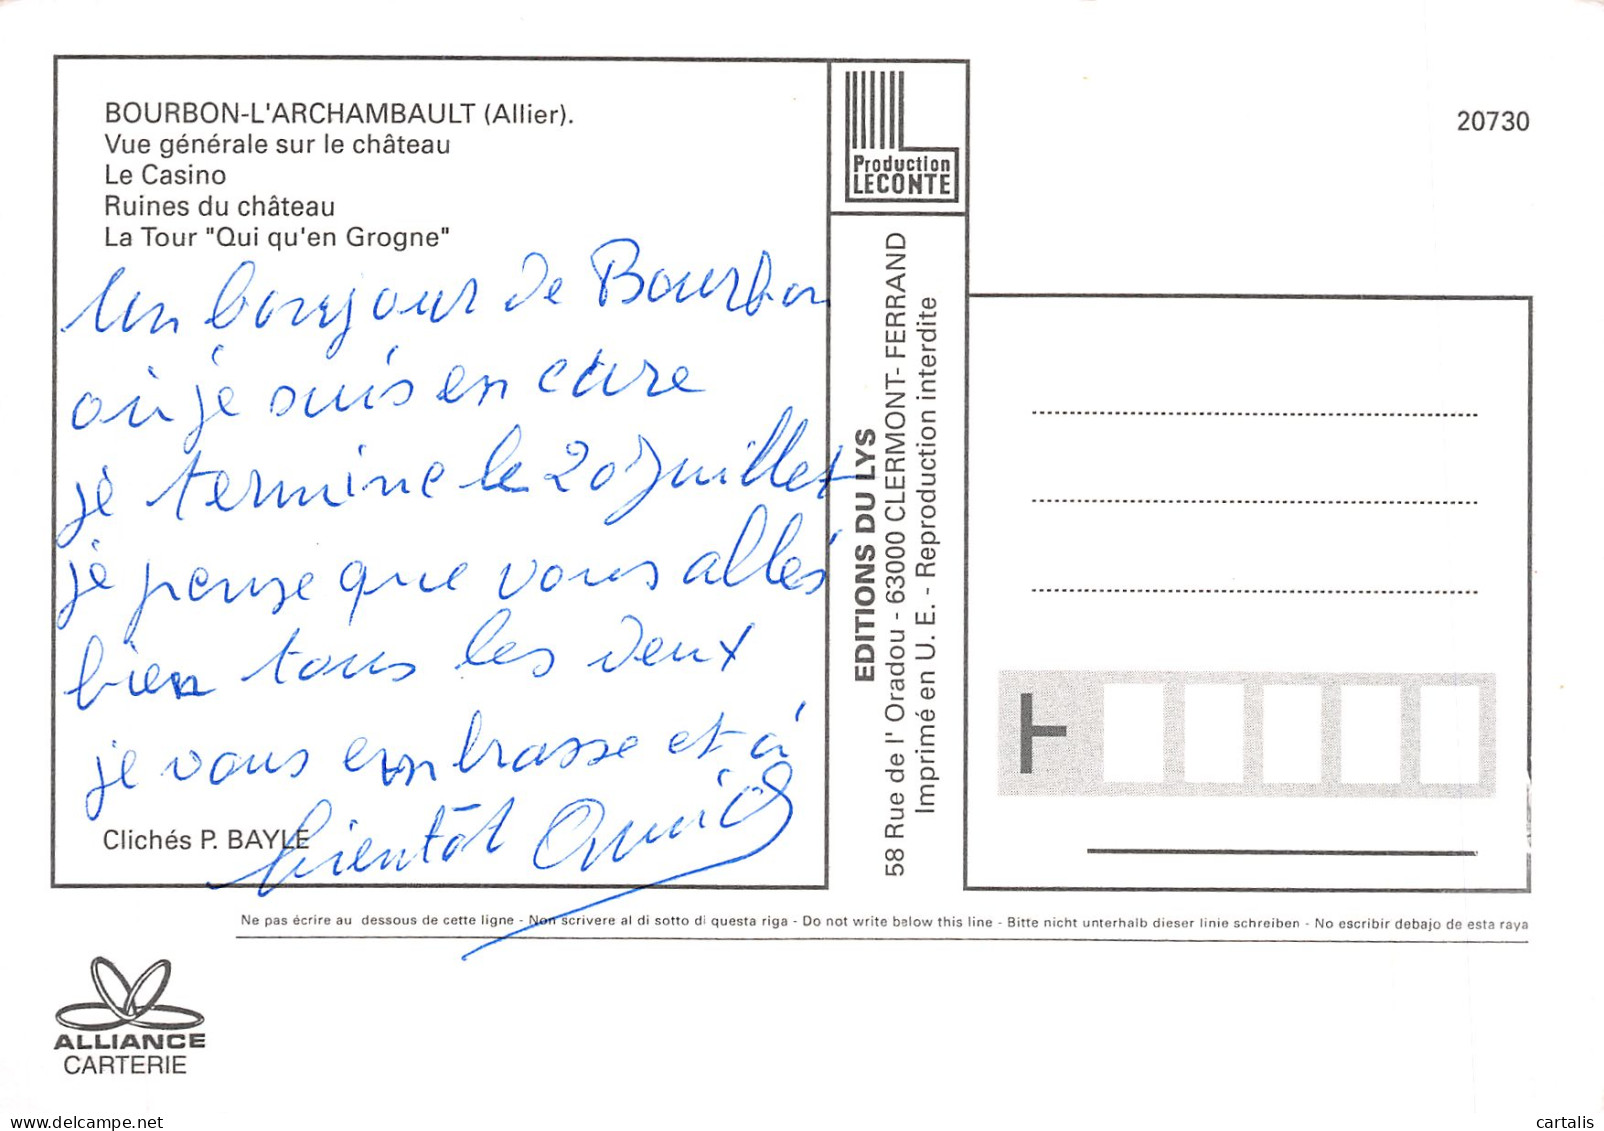 BOURBON-L'ARCHAMBAULT (Allier).
Vue générale sur le château
Le Casino
Ruines du château
La Tour "Qui qu'en Grogne"
Un bonjour de Bourbon
où je suis en cure
je termine le 20 Juillet
je pense que vous allés
bien tous les deux
je vous embrasse et à
bientôt
Clichés P. BAYLE
Production
LECONTE
EDITIONS DU LYS
58 Rue de l' Oradou - 63000 CLERMONT- FERRAND
Imprimé en U. E. - Reproduction interdite
20730
Ne pas écrire au dessous de cette ligne - Non scrivere al di sotto di questa riga - Do not write below this line - Bitte nicht unterhalb dieser linie schreiben - No escribir debajo de esta raya
ALLIANCE
CARTERIE
cartalis